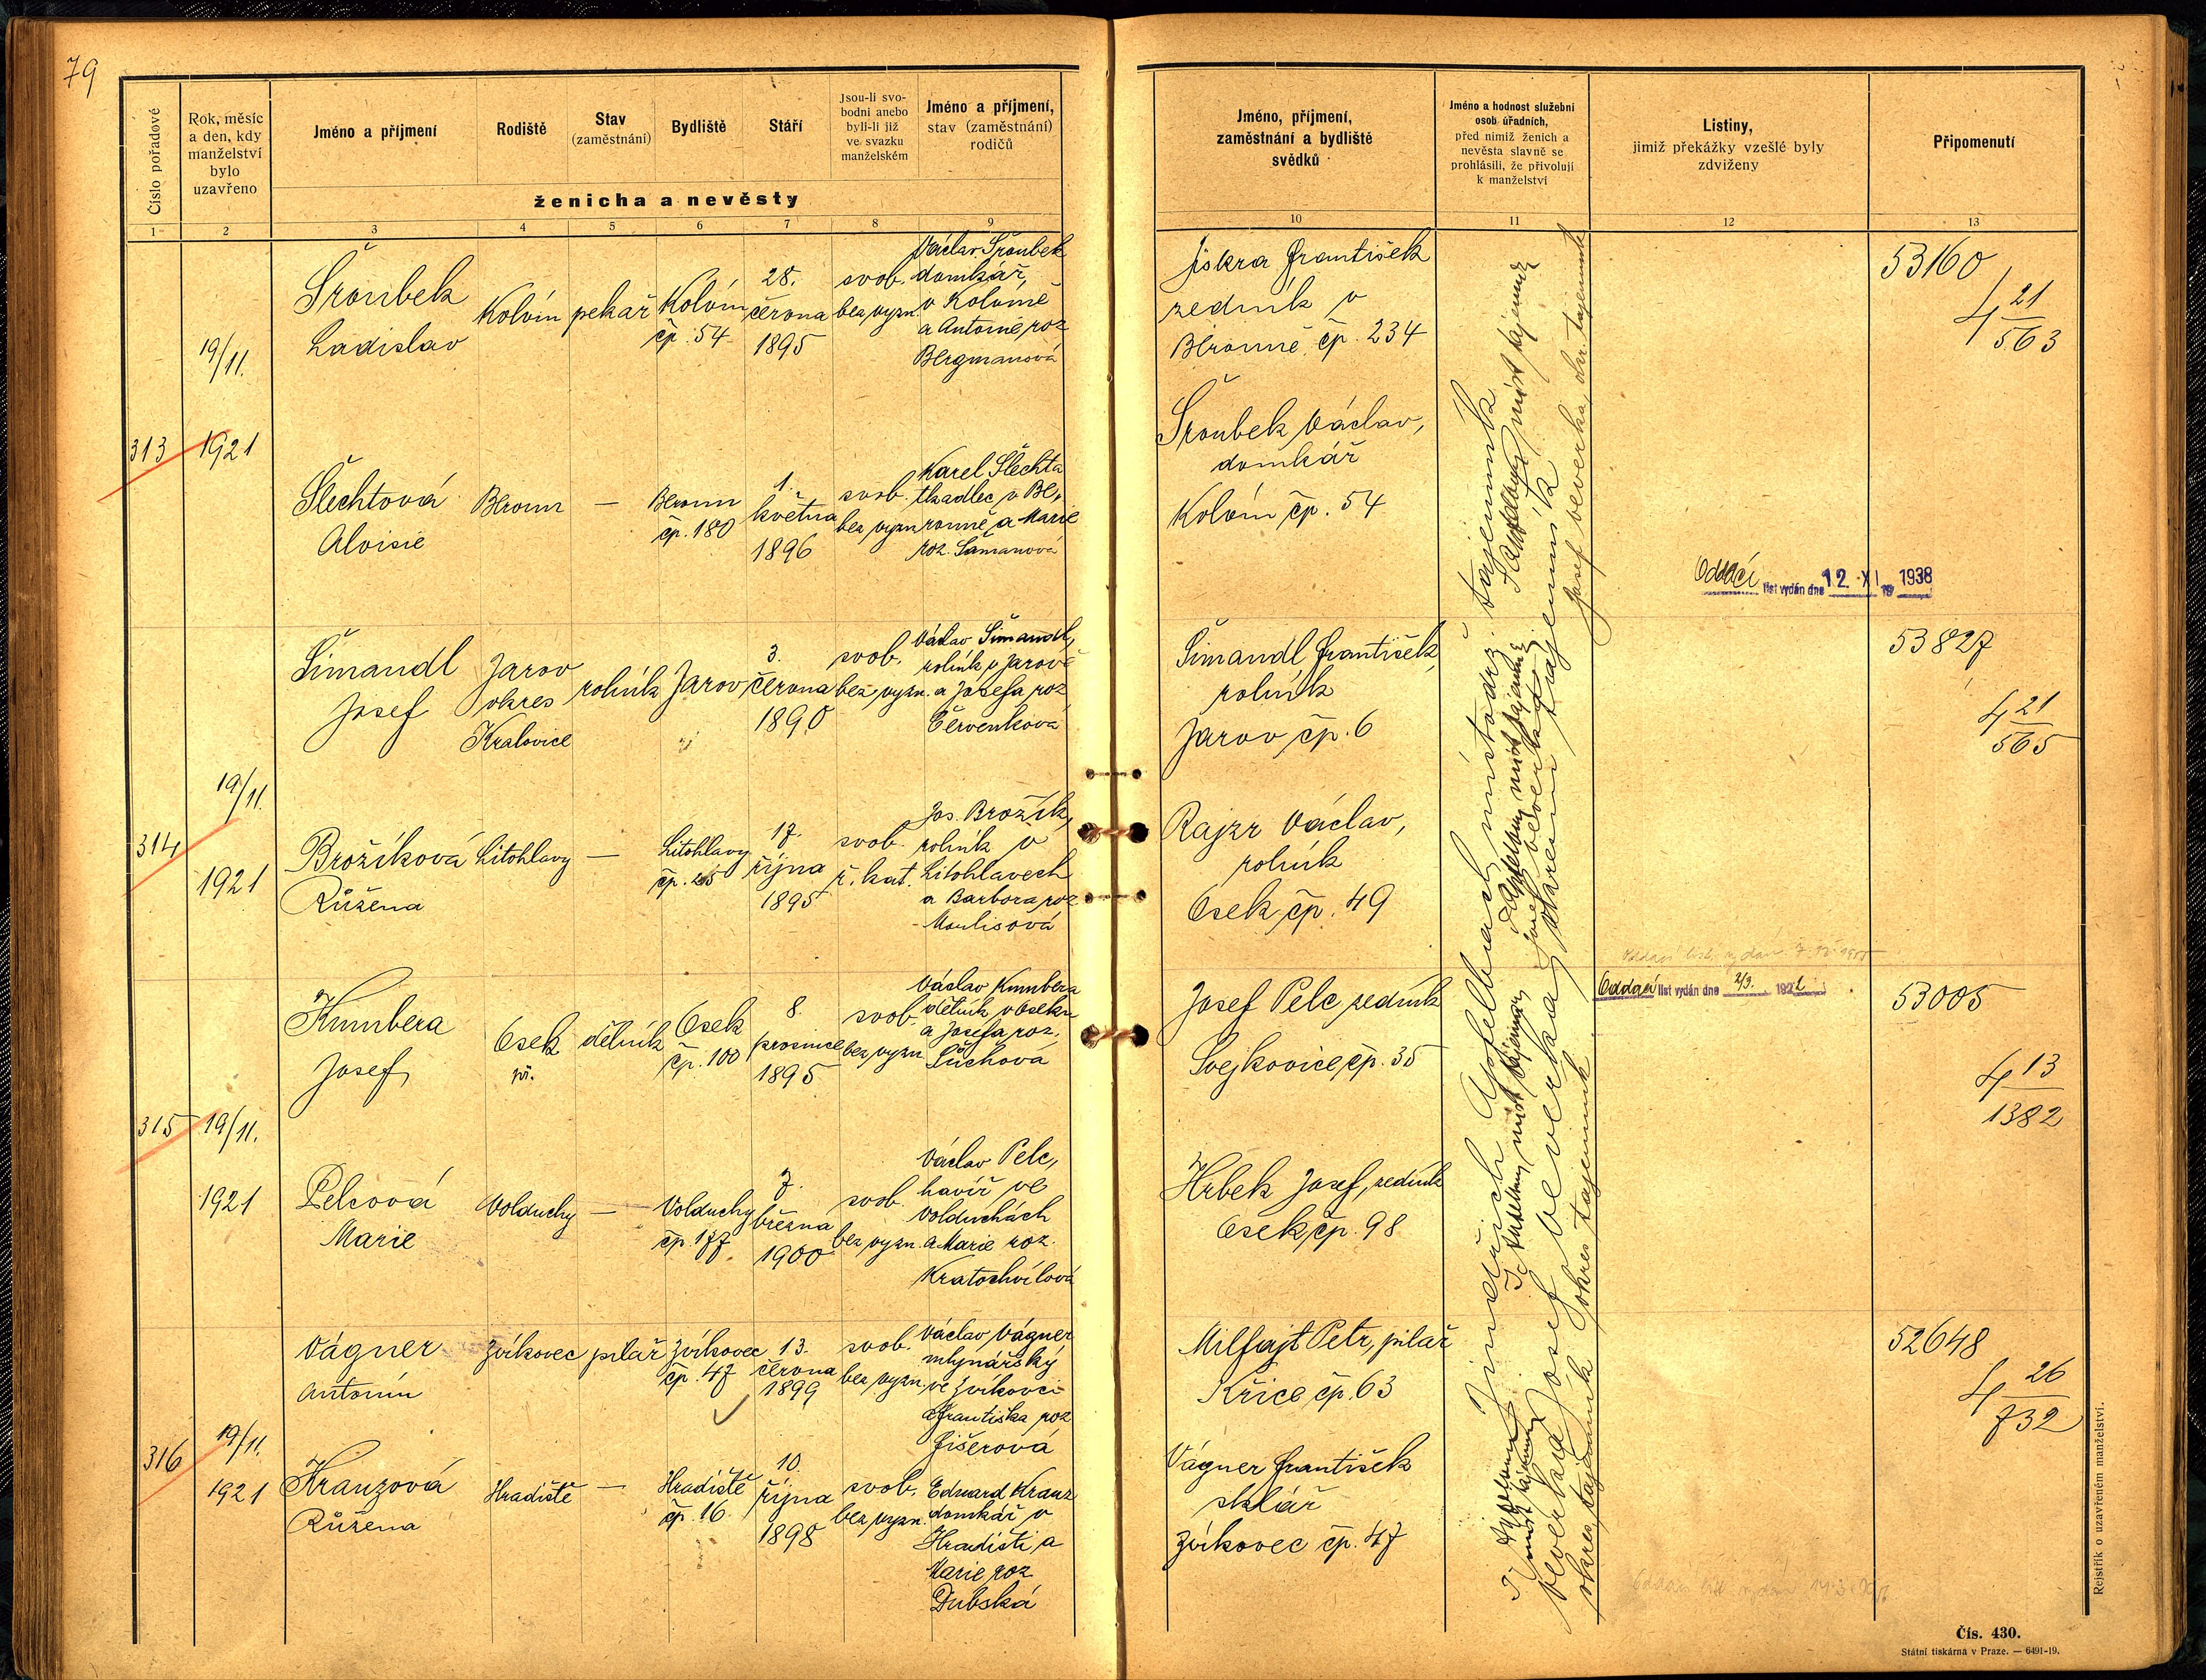 79
Číslo pořadové
Rok, měsíc
a den, kdy
manželství
bylo
uzavřeno
Jméno a příjmení
Rodiště
Stav
(zaměstnání)
Bydliště
Stáří
Jsou-li svo-
bodni anebo
byli-li již
ve svazku
manželském
Jméno a příjmení,
stav (zaměstnání)
rodičů
ženicha a nevěsty
Jméno, příjmení,
zaměstnání a bydliště
svědků
Jméno a hodnost služební
osob úřadních,
před nimiž ženich a
nevěsta slavně se
prohlásili, že přivolují
k manželství
Listiny,
jimiž překážky vzešlé byly
zdviženy
Připomenutí
1 2 3 4 5 6 7 8 9 10 11 12 13
313
19/11.
1921
Šroubek
Ladislav
Kolvín
pekař
Kolvín
čp. 54
28.
června
1895
svob.
bez vyzn.
Václav Šroubek
domkář,
v Kolvíně
a Antonie roz
Bergmanová
Šlechtová
Aloisie
Beroun
—
Beroun
čp. 180
1.
května
1896
svob.
bez vyzn
Karel Šlechta
tkadlec v Be-
rouně a Marie
roz. Šámanová
Jiskra František
zedník v
Berouně čp. 234
Šroubek Václav,
domkář
Kolvín čp. 54
Oddací list vydán dne 12. XI. 1938
53160
4 21/563
314
19/11.
1921
Šimandl
Josef
Jarov
okres
Kralovice
rolník
Jarov
3.
června
1890
svob.
bez vyzn.
Václav Šimandl,
rolník v Jarově
a Josefa roz
Červenková
Brožíková
Růžena
Litohlavy
—
Litohlavy
čp. 25
17.
října
1895
svob.
ř. kat.
Jos. Brožík,
rolník v
Litohlavech
a Barbora roz
Moulisová
Šimandl František,
rolník
Jarov čp. 6
Rajzr Václav,
rolník
Osek čp. 49
53827
4 21/565
315
19/11.
1921
Kumbera
Josef
Osek
dělník
Osek
čp. 100
8.
prosince
1895
svob.
bez vyzn
Václav Kumbera
dělník v Oseku
a Josefa roz.
Šůchová
Pelcová
Marie
Volduchy
—
Volduchy
čp 177
7.
března
1900
svob.
bez vyzn.
Václav Pelc,
havíř ve
Volduchách
a Marie roz.
Kratochvílová
Josef Pelc zedník
Svejkovice čp. 35
Hrbek Josef, zedník
Osek čp. 98
Oddací list vydán dne 2/3. 1922
53005
4 13/1382
316
19/11.
1921
Vágner
Antonín
Zvíkovec
pilař
Zvíkovec
čp. 47
13.
června
1899
svob.
bez vyzn.
Václav Vágner
mlynářský
ve Zvíkovci
a Františka roz
Fišerová
Kranzová
Růžena
Hradiště
—
Hradiště
čp. 16.
10
října
1898
svob.
bez vyzn.
Eduard Kranz
domkář v
Hradišti a
Marie roz
Dubská
Milfajt Petr, pilař
Křice čp. 63
Vágner František
sklář
Zvíkovec čp. 47
52648
4 26/732
Jindřich Apfelbach místodrž. tajemník
Josef Veverka okresní tajemník
Josef Veverka, okr. tajemník
Veverka
okres. tajemník
Rejstřík o uzavřeném manželství.
Čís. 430.
Státní tiskárna v Praze. — 6491-19.